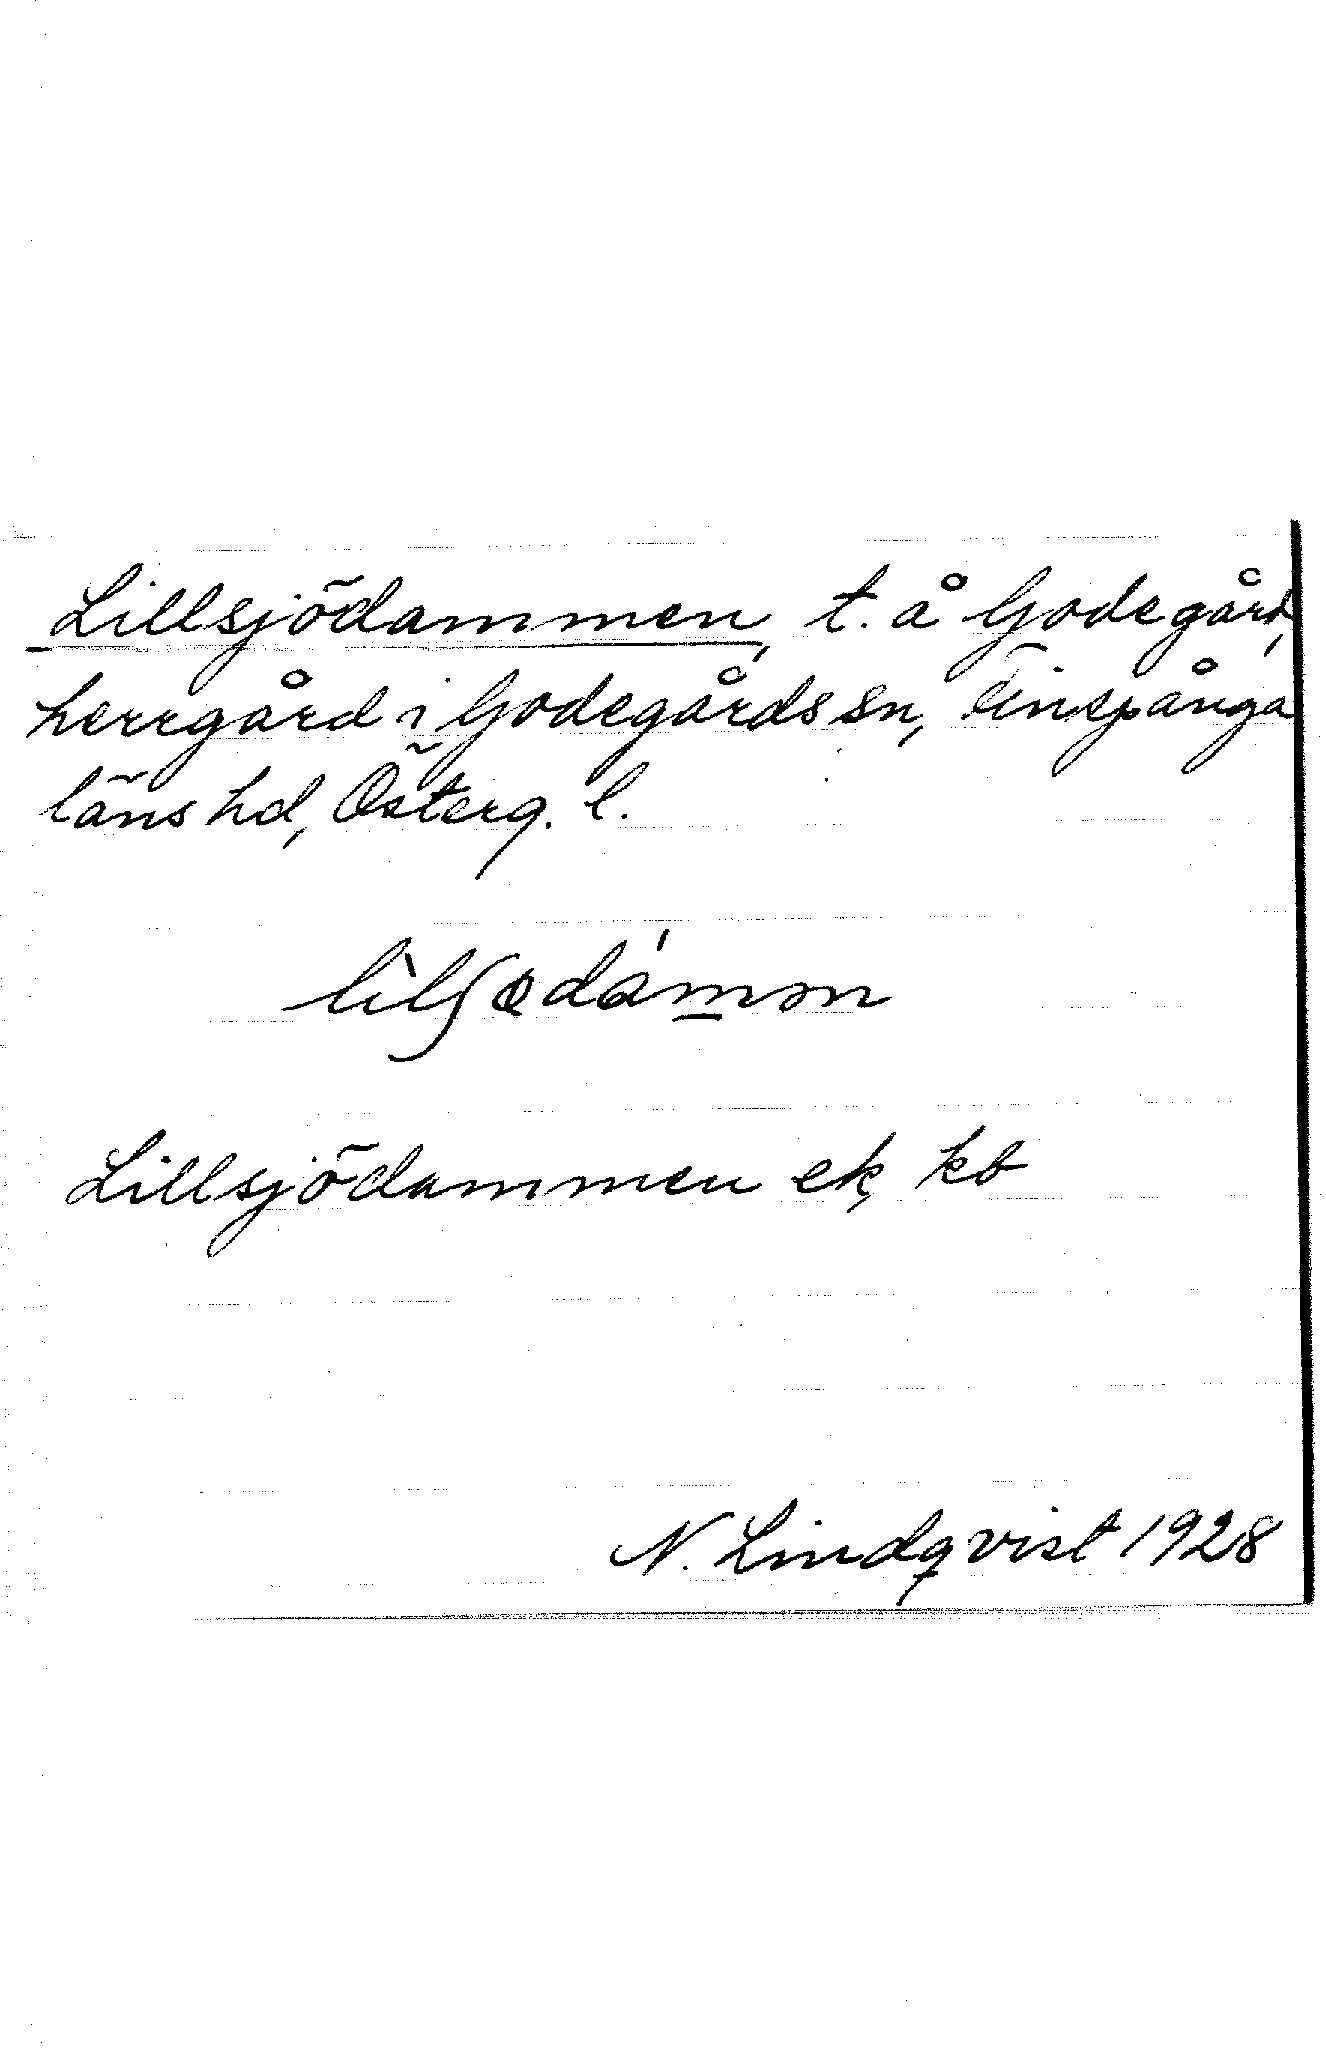 Lillsjödammen, t. å Godegård,
herrgård i Godegårds sn, Finspånga
läns hd, Österg. l.
lìlʃɵdámən
Lillsjödammen ek, kb
N. Lindqvist 1928